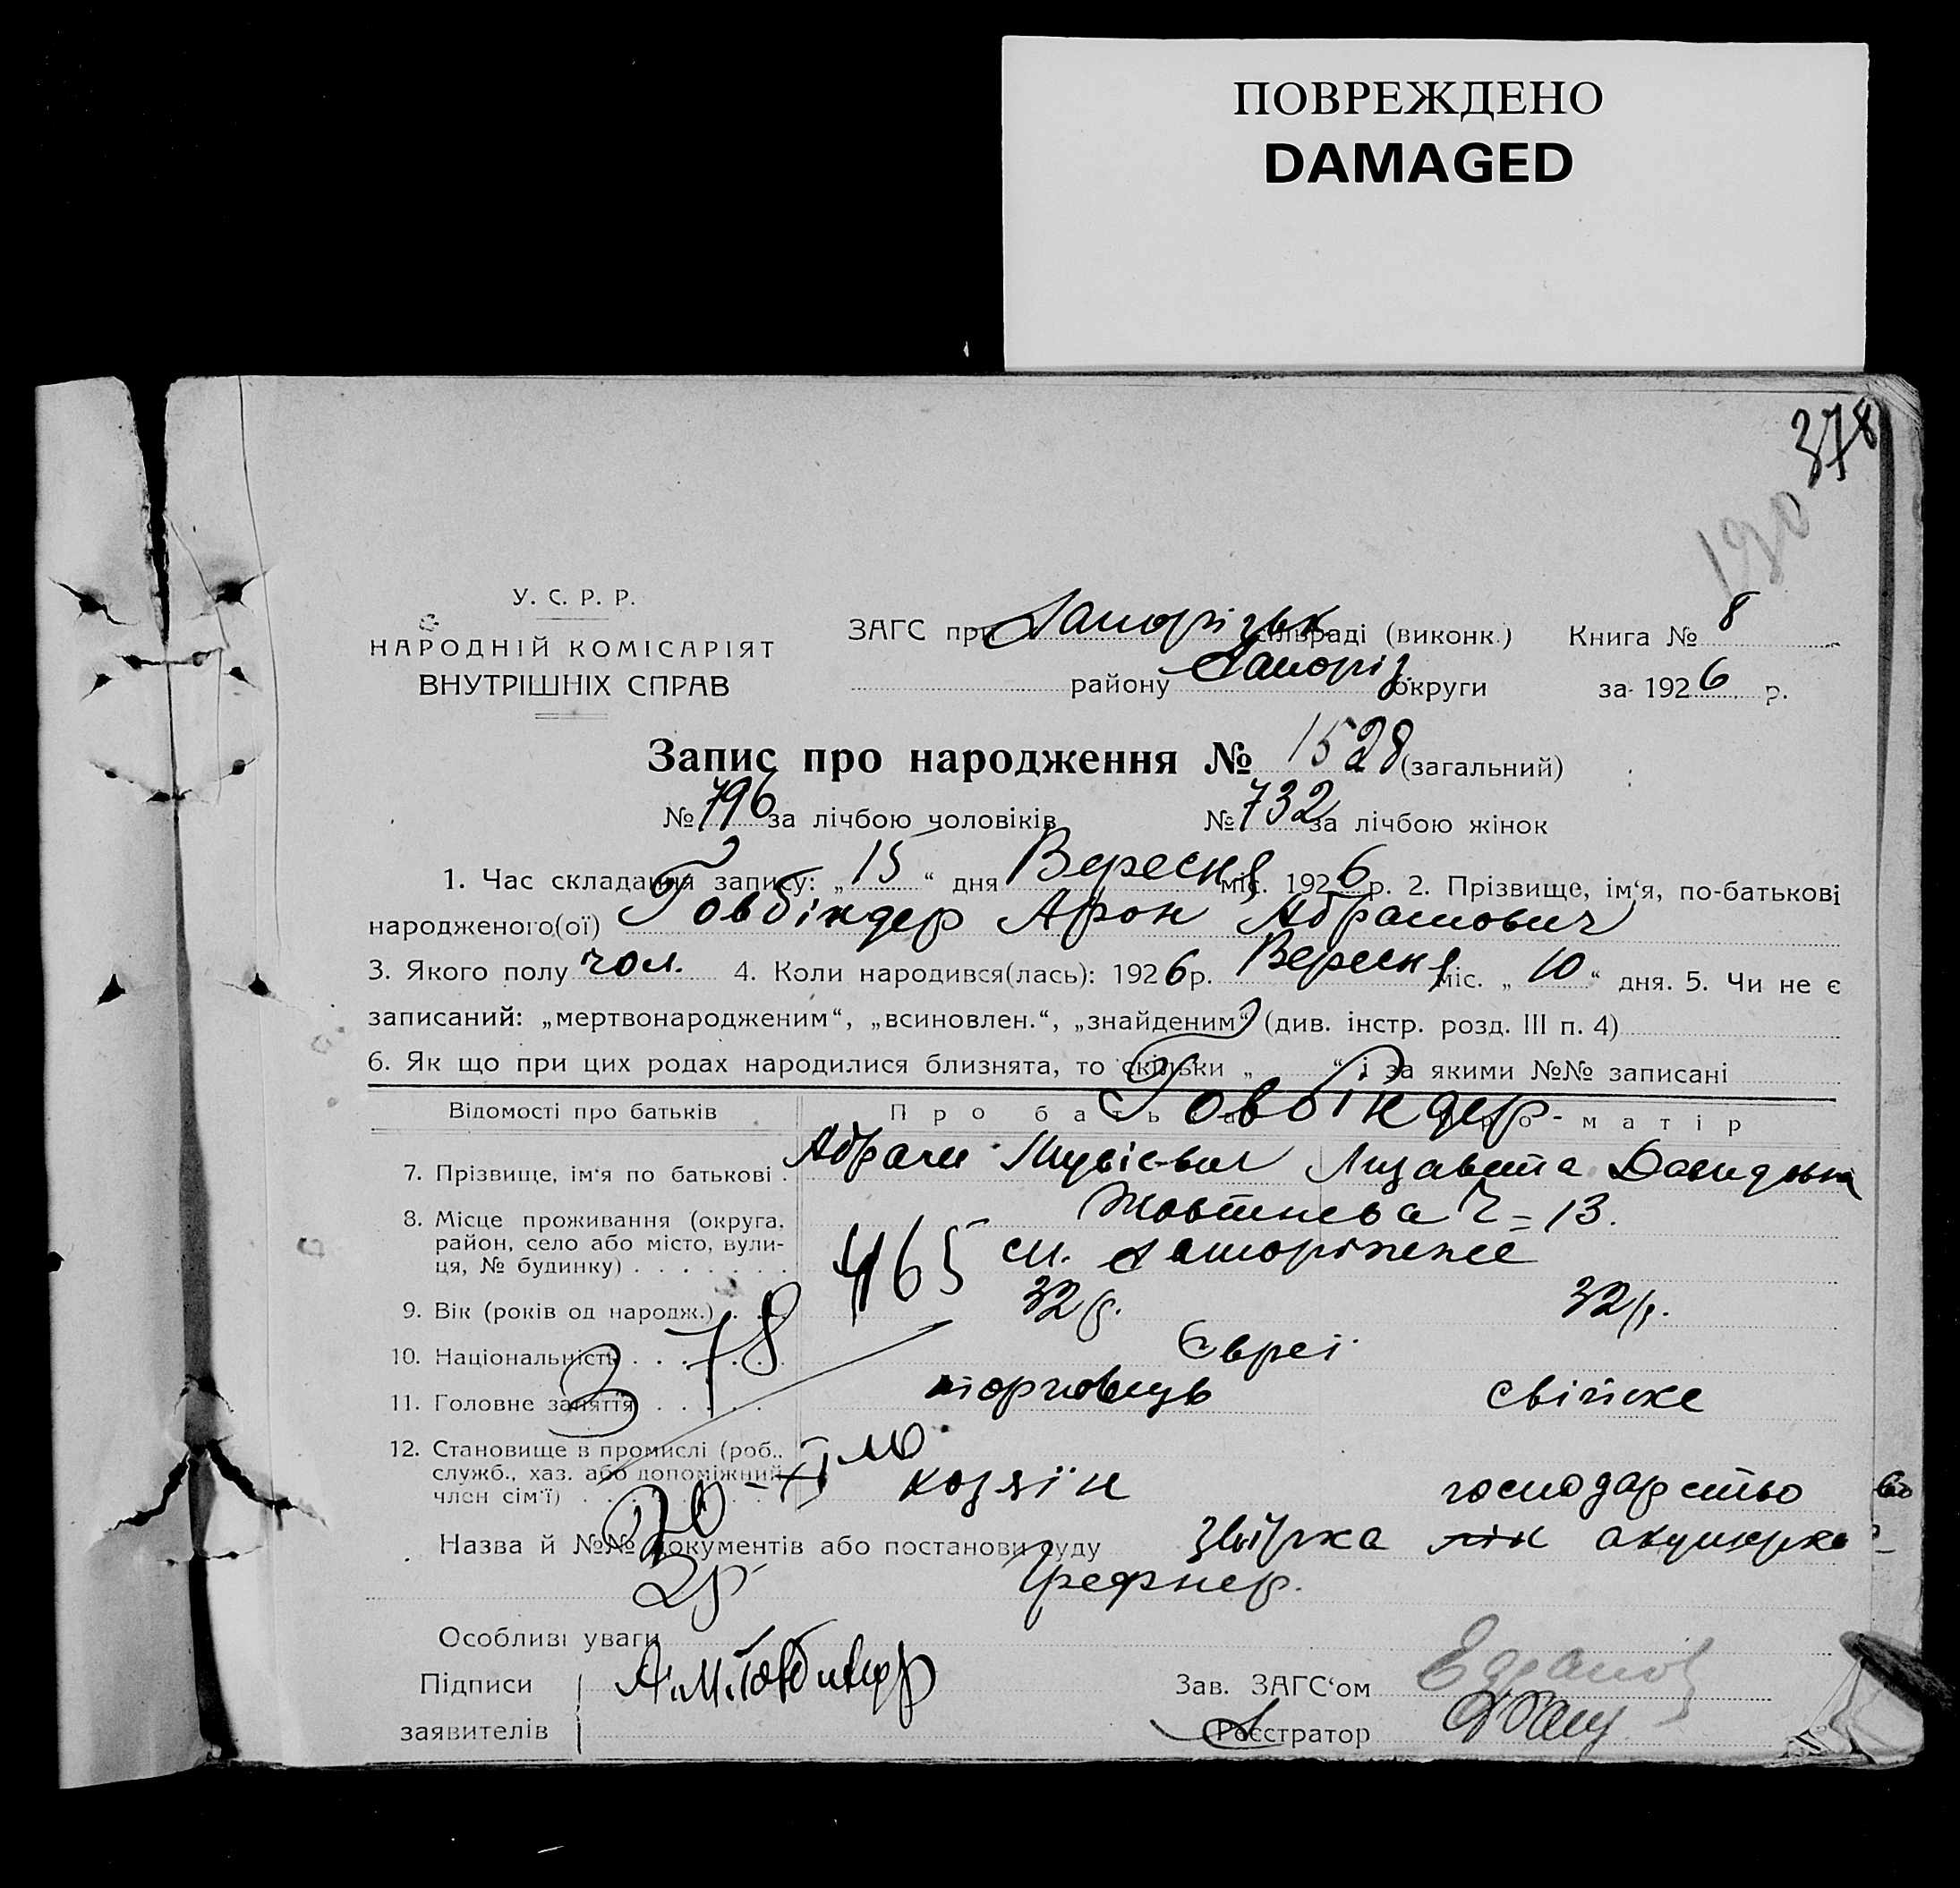 ПОВРЕЖДЕНО
DAMAGED
378
190
У. С. Р. Р.
НАРОДНІЙ КОМІСАРІЯТ
ВНУТРІШНІХ СПРАВ
ЗАГС при Запорізьк сільраді (виконк.) Книга № 8
району Запоріз. округи за 1926 р.
Запис про народження № 1528 (загальний)
№ 796 за лічбою чоловіків № 732 за лічбою жінок
1. Час складання запису: „15“ дня Вересня міс. 1926 р. 2. Прізвище, ім‘я, по-батькові
народженого(ої) Говбіндер Арон Абрамович
3. Якого полу чол. 4. Коли народився(лась): 1926 р. Вересня міс. „10“ дня. 5. Чи не є
записаний: „мертвонародженим“, „всиновлен.“, „знайденим“ (див. інстр. розд. III п. 4)
6. Як що при цих родах народилися близнята, то скільки „ “ і за якими №№ записані
Відомості про батьків Про батька Говбіндер Про матір
7. Прізвище, ім‘я по батькові . Абрам Лизавета Давидовна
8. Місце проживання (округа, район, село або місто, вулиця, № будинку) Жовтнева Ч = 13.
465 см. Запоріжжє
9. Вік (років од народж.) 32 р. 32 р.
378
10. Національність Євреї
11. Головне заняття торговець свійске
12. Становище в промислі (роб., служб., хаз. або допоміжний член сім‘ї) хозяїн господарство
Назва й №№ документів або постанови суду акушерка
20
Зр
Особливі уваги
Підписи А. М. Говбиндер Зав. ЗАГС‘ом
заявителів Реєстратор